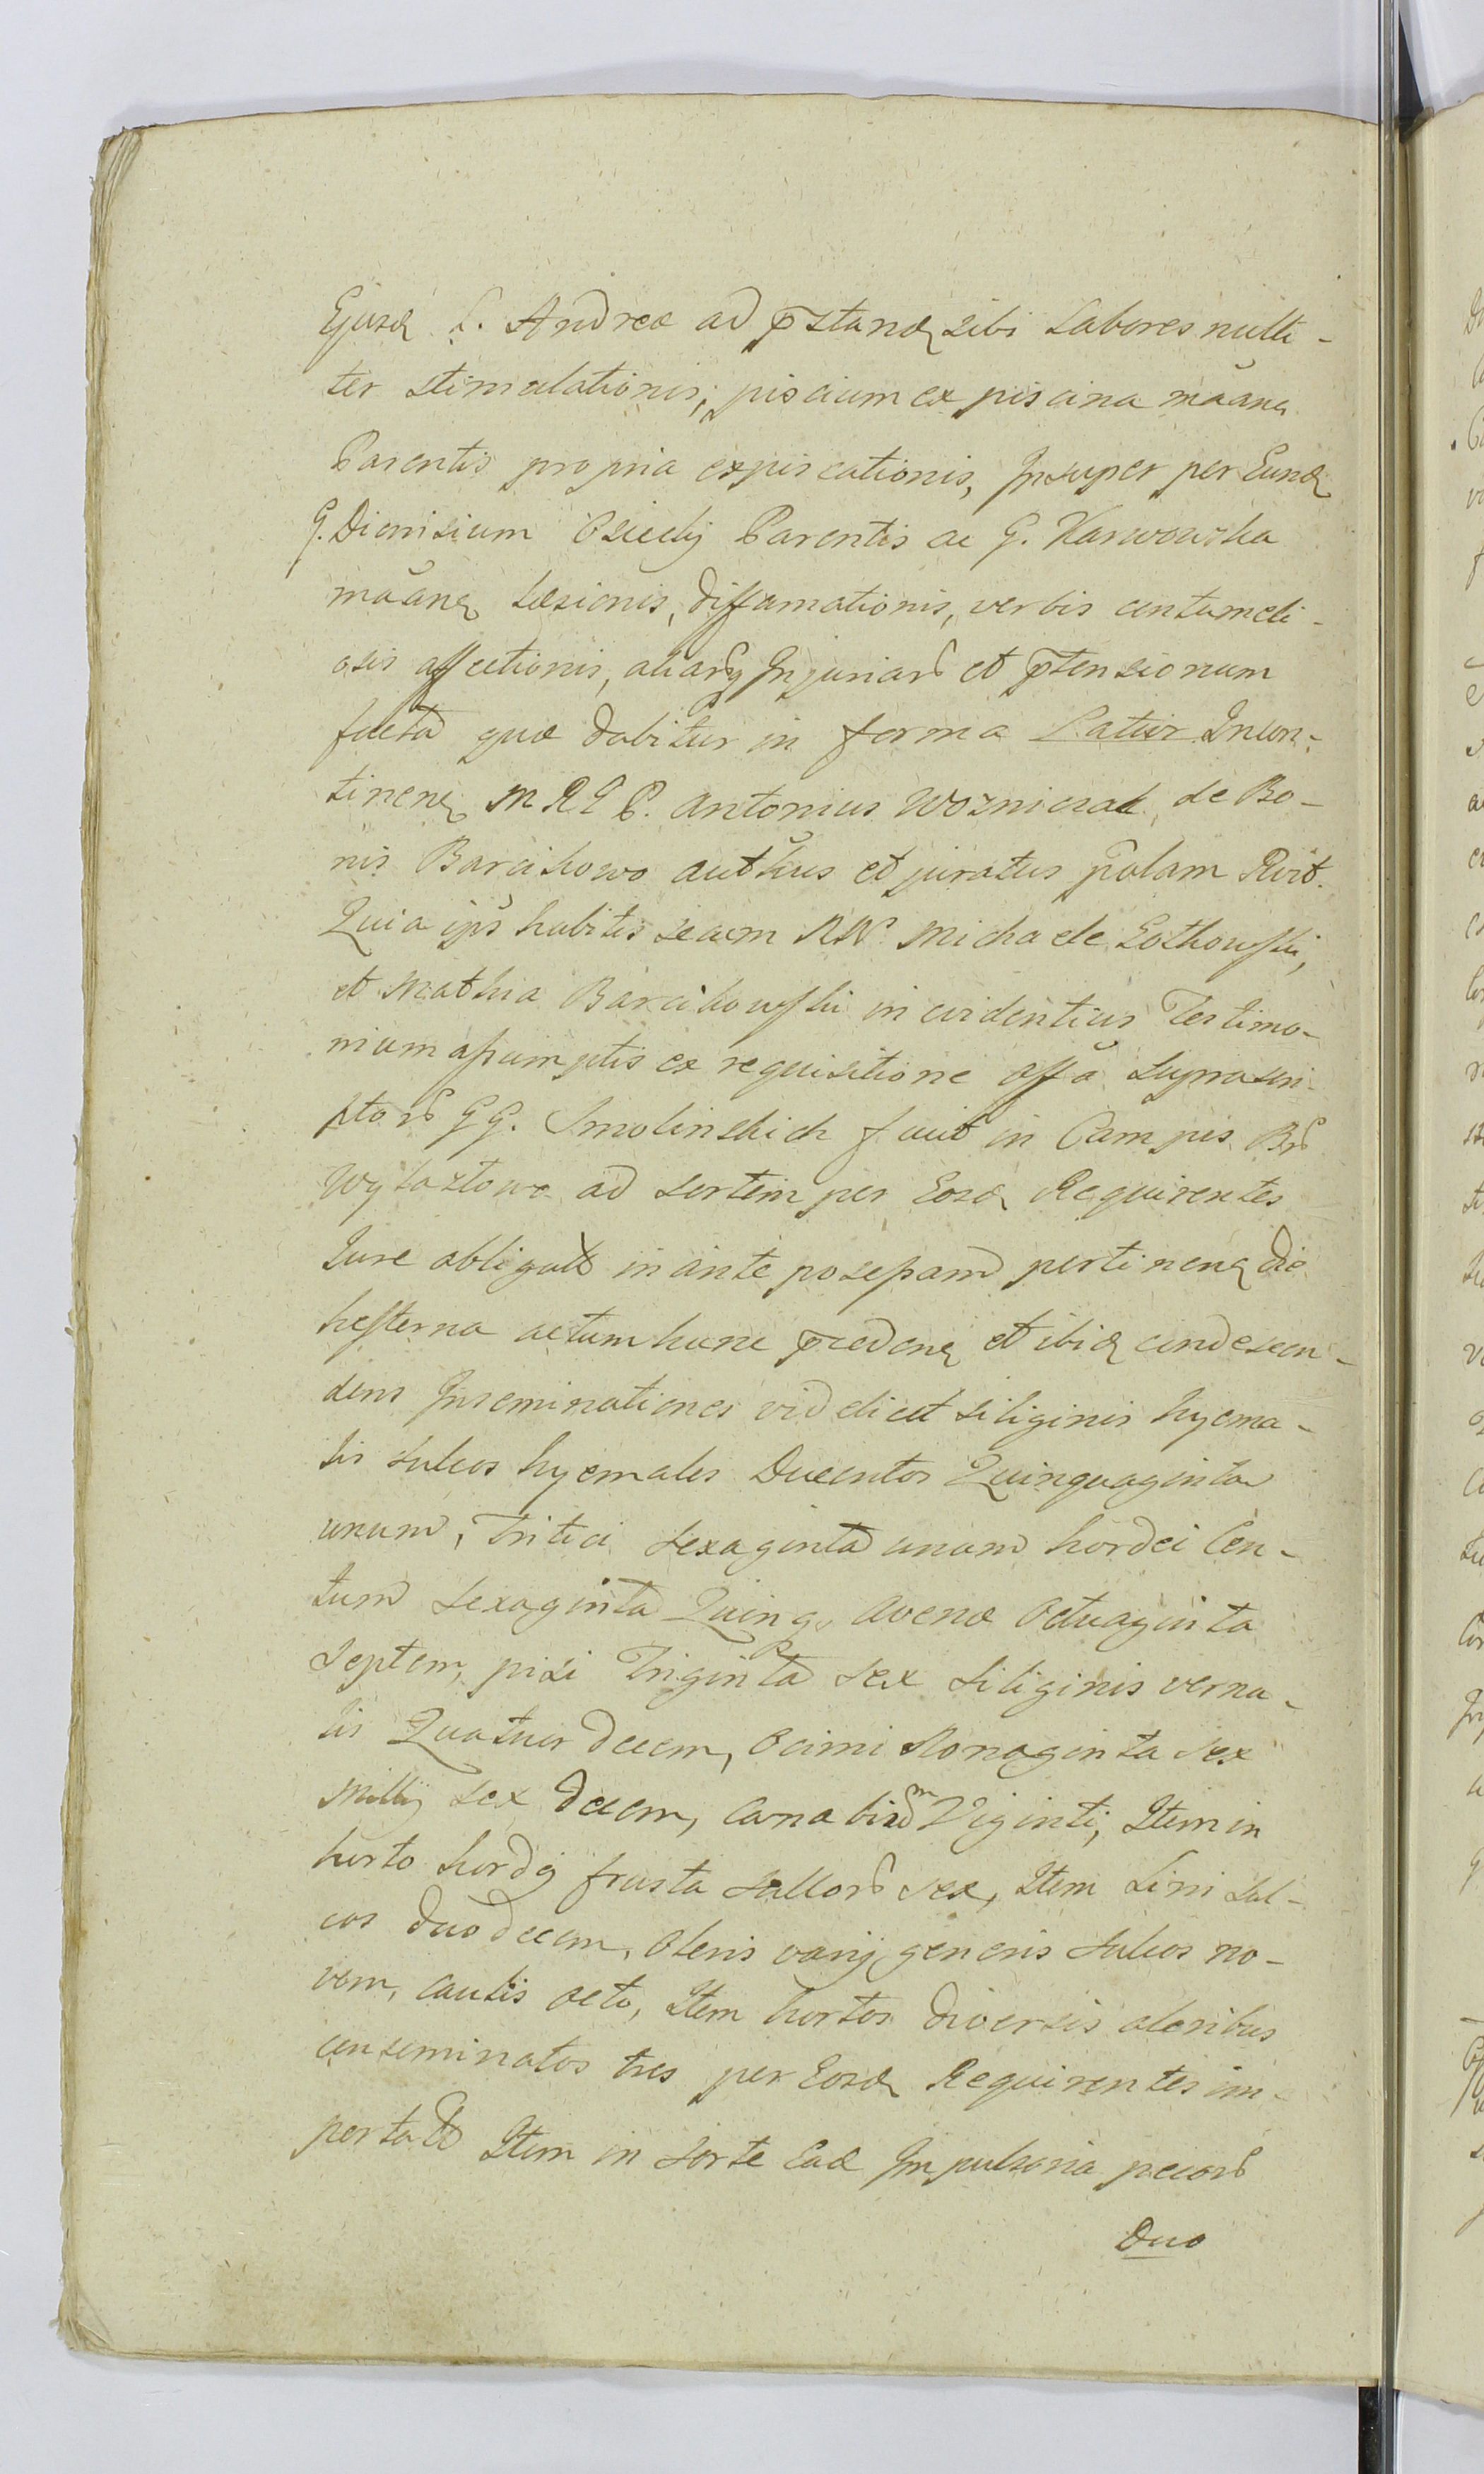 Ejusd L. Andreæ ad pstand sibi Labores nulli-
ter stimulationis, piscium ex piscina mãanen
Parentis propria expiscationis, Insuper per Eund
G. Dionisium Osiecky Parentis ac G. Karwowska
mãanen Læsionis, diffamationis, verbis contumeli-
osis affectionis, aliarq Injuriar et ptensionum
facta quæ dabitur in forma Latior Incon-
tinenen M R G P. Antonius Wozniczak, de Bo-
nis Barcikowo authus et juratus palam Rvit.
Quia ips habitis secum NN Michaele Lothowski,
et Mathia Barcikowski in evidentius Testimo-
nium assumptis ex requisitione affa suprascri-
ptor GG. Smolinskich fuit in Campis Br
Wylaztowo ad sortem per Eosd Requirentes
Jure obligat in ante possessam pertinen die
hesterna actum hunc præden et ibid condescen-
dens Inseminationes videlicet siliginis hyema-
lis sulcos hyemales Ducentos Quinquaginta
unum, Tritici sexaginta unum hordei Cen-
tum sexaginta Quinq, avenæ Octuaginta
septem, pisi Triginta sex siliginis verna-
lis Quatuor decem, Ocimi Nonaginta sex
Millij sex decem, Canabium Viginti, Item in
horto hordej frusta sallor sex, Item Lini sul-
cos duodecem, Oleris varij generis sulcos no-
vem, caulis octo, Item hortos diversis oleribus
conseminatos tres per Eosd Requirentes im-
portatt Item in sorte Ead Impulsoria pecor
Duo